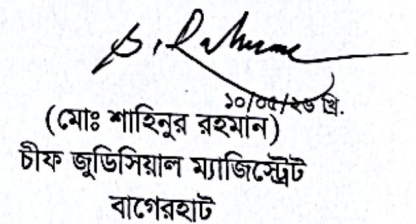 ১০/০৫/২৬ খ্রি.
(মোঃ শাহিনুর রহমান)
চীফ জুডিসিয়াল ম্যাজিস্ট্রেট
বাগেরহাট